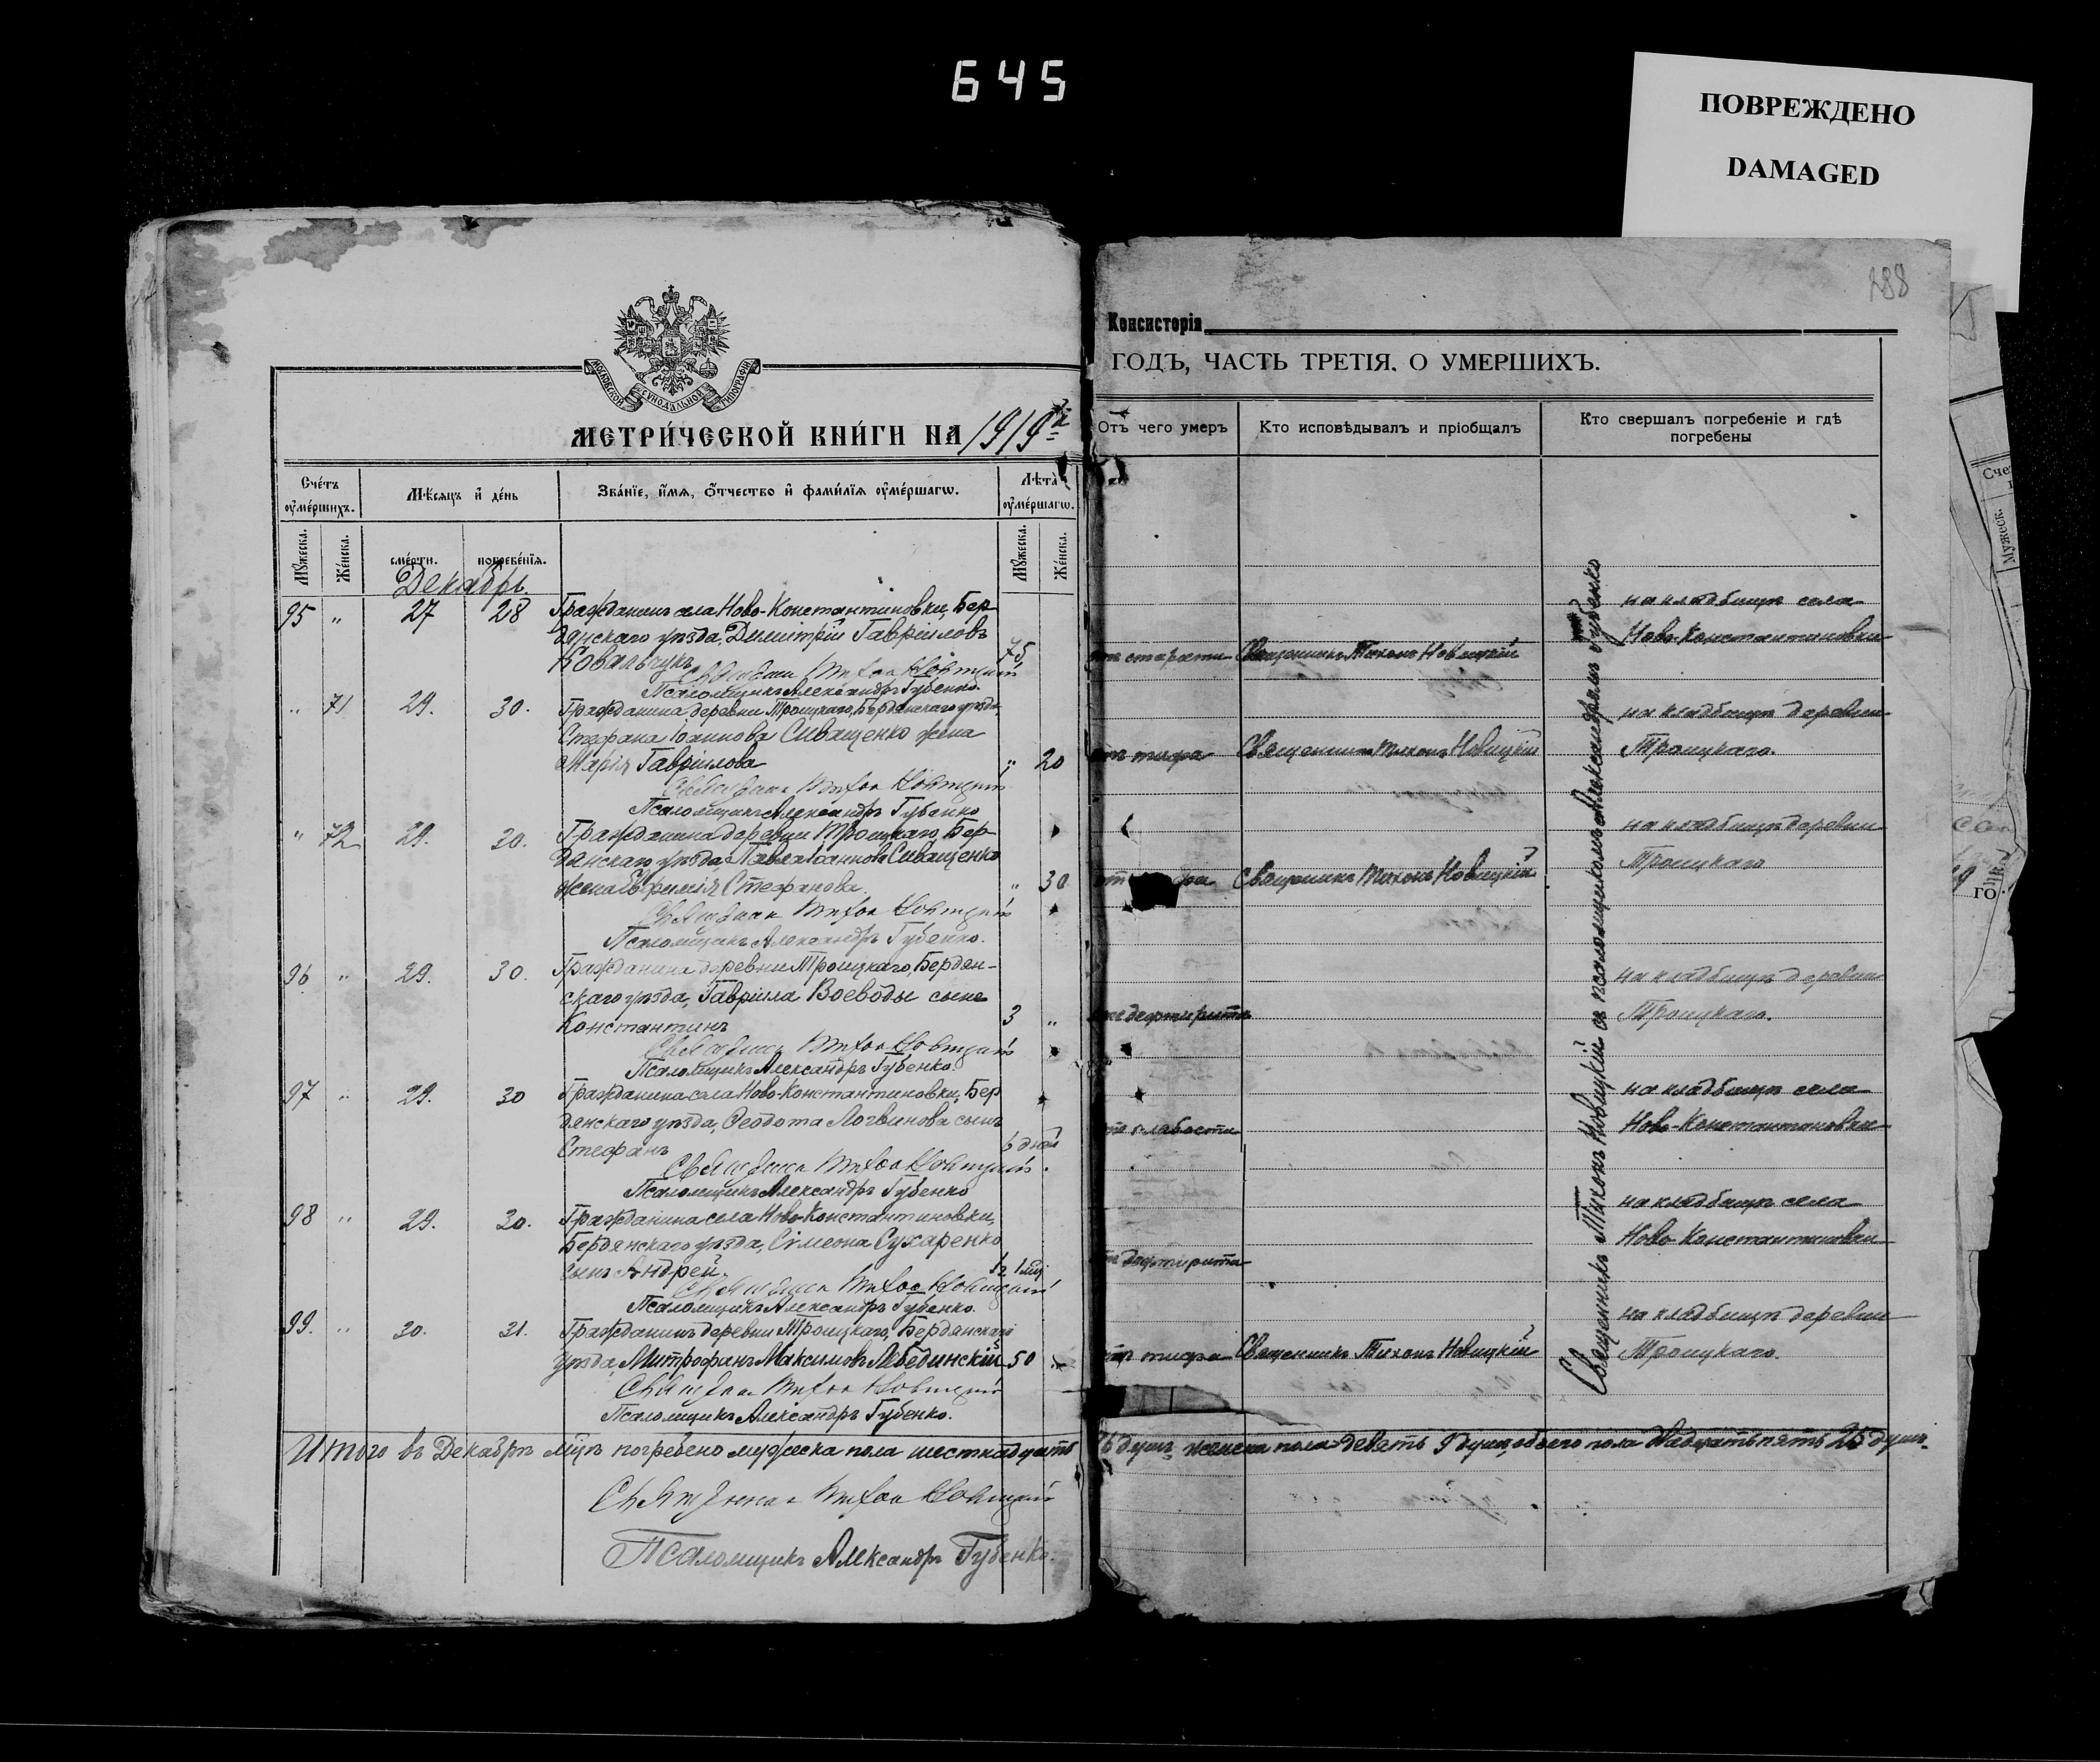 645
ПОВРЕЖДЕНО
DAMAGED
288
МОСКОВСКОЙ СѴНОДАЛЬНОЙ ТИПОГРАФІИ
МЕТРИ́ЧЕСКОЙ КНИ́ГИ НА 1919 й
Консисторія
ГОДЪ, ЧАСТЬ ТРЕТІЯ. О УМЕРШИХЪ.
Сче́тъ ᲂу҆ме́ршихъ.
Мѣ́сяцъ и҆ де́нь
Зва́нїе, и҆́мя, ѻ҆́тчество и҆ фами́лїя ᲂу҆ме́ршагѡ.
Лѣ́та ᲂу҆ме́ршагѡ.
Отъ чего умеръ
Кто исповѣдывалъ и пріобщалъ
Кто свершалъ погребеніе и гдѣ погребены
Мꙋ́жеска.
Же́нска.
сме́рти.
погребе́нїя.
Мꙋ́жеска.
Же́нска.
Декабрь
95 " 27 28 Гражданинъ села Ново-Константиновки, Бер-
дянскаго уѣзда, Димитрій Гавріиловъ
Ковальчукъ 75
Священник Тихон Новицкий
Псаломщикъ Александръ Губенко.
отъ старости Священникъ Тихонъ Новицкій
на кладбищѣ села
Ново-Константиновки
" 71 29. 30. Гражданина деревни Троицкаго, Бердянскаго уѣзда,
Стефана Іоаннова Сиващенко жена
Марія Гавріилова " 20
Священник Тихон Новицкий
Псаломщикъ Александръ Губенко
отъ тифа Священникъ Тихонъ Новицкій
на кладбищѣ деревни
Троицкаго.
" 72 29. 30. Гражданина деревни Троицкаго, Бер-
дянскаго уѣзда, Павла Іоаннова Сиващенко
жена Евфимія Стефанова. " 30
Священник Тихон Новицкий
Псаломщикъ Александръ Губенко.
Священникъ Тихонъ Новицкій
на кладбищѣ деревни
Троицкаго
96 " 29. 30. Гражданина деревни Троицкаго, Бердян-
скаго уѣзда, Гавріила Воеводы сынъ
Константинъ 3 "
Священник Тихон Новицкий
Псаломщикъ Александръ Губенко.
отъ дефтирита
на кладбищѣ деревни
Троицкаго.
97 " 29. 30 Гражданина села Ново-Константиновки, Бер
дянскаго уѣзда, Феодота Логвинова сынъ
Стефанъ 6 дней
Священник Тихон Новицкий.
Псаломщикъ Александръ Губенко
отъ слабости
на кладбищѣ села
Ново-Константиновки
98 " 29. 30. Гражданина села Ново-Константиновки,
Бердянскаго уѣзда, Сімеона Сухаренко
сынъ Андрей.
Священник Тихон Новицкий
Псаломщикъ Александръ Губенко.
отъ дефтирита
на кладбищѣ села
Ново-Константиновки
99. " 30. 31. Гражданинъ деревни Троицкаго, Бердянскаго
уѣзда, Митрофанъ Максимовъ Лебединскій 50 "
Священник Тихон Новицкий
Псаломщикъ Александръ Губенко.
отъ тифа Священникъ Тихонъ Новицкій
на кладбищѣ деревни
Троицкаго.
Священникъ Тихонъ Новицкій съ псаломщикомъ Александромъ Губенко
Итого въ Декабрѣ мцѣ погребено мужеска пола шестнадцать 16 душъ, женска пола девять 9 душъ, обоего пола двадцать пять 25 душъ.
Священник Тихон Новицкий
Псаломщикъ Александръ Губенко.
Мужеск.
го.